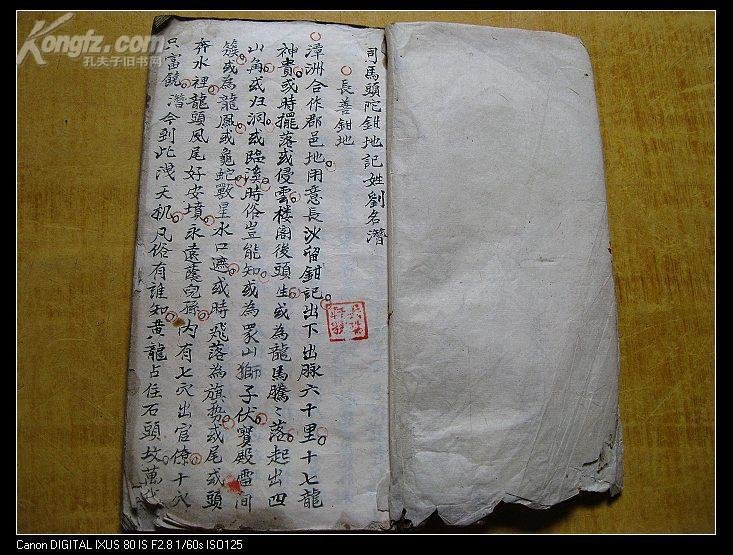 Kongfz.com
孔夫子旧书网
司馬頭陀鉗地記姓劉名潛
長善鉗地
漳洲合作郡邑地用意長沙留鉗記出下出脉六十里十七龍
神貴或時擺落或侵雲楼閣後頭生或為龍馬騰〻落起出四
山角或归洞或臨溪時俗豈能知或為眾山獅子伏寶殿雲間
簇或為龍鳳或龜蛇獸星水口遮或時飛落為旗势或尾或頭
奔水裡龍頭凤尾好安墳永遠蔭兒孫内有七穴出官僚十穴
只富饒潛今到此洩天机凡俗有誰知黄龍占住石頭坟萬
Canon DIGITAL IXUS 80 IS F2.8 1/60s ISO125